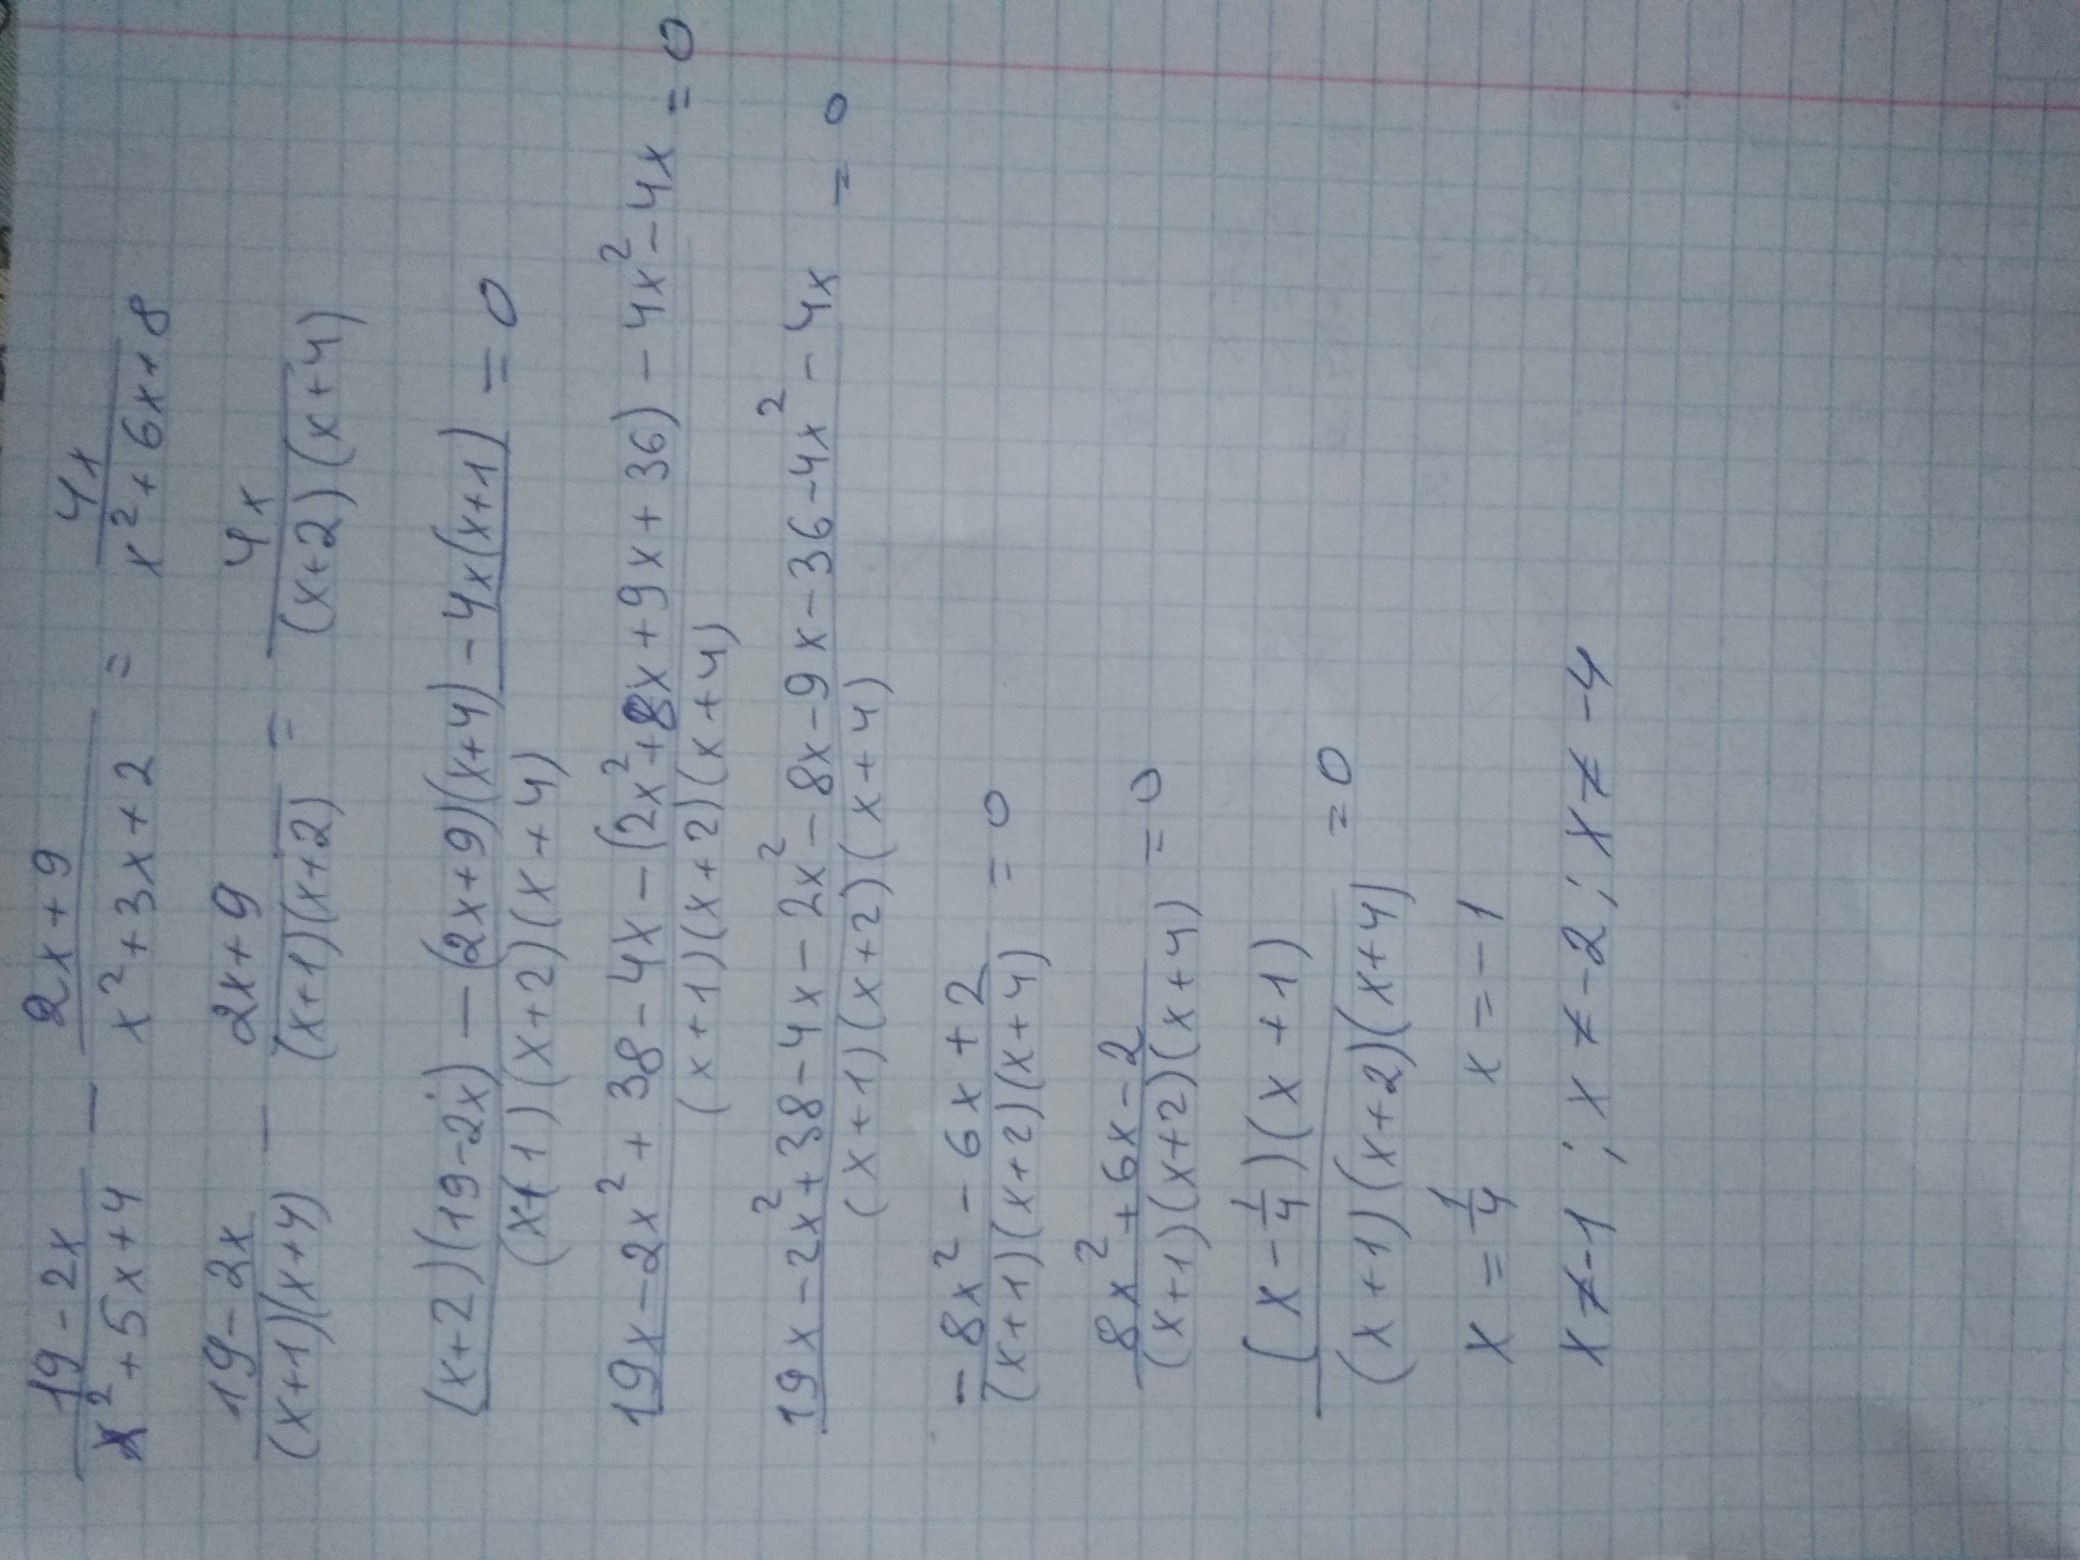 (19-2x)/(x²+5x+4) - (2x+9)/(x²+3x+2) = 4x/(x²+6x+8)
(19-2x)/((x+1)(x+4)) - (2x+9)/((x+1)(x+2)) = 4x/((x+2)(x+4))
((x+2)(19-2x) - (2x+9)(x+4) - 4x(x+1))/((x+1)(x+2)(x+4)) = 0
(19x-2x²+38-4x-(2x²+8x+9x+36)-4x²-4x)/((x+1)(x+2)(x+4)) = 0
(19x-2x²+38-4x-2x²-8x-9x-36-4x²-4x)/((x+1)(x+2)(x+4)) = 0
(-8x²-6x+2)/((x+1)(x+2)(x+4)) = 0
(8x²+6x-2)/((x+1)(x+2)(x+4)) = 0
((x-1/4)(x+1))/((x+1)(x+2)(x+4)) = 0
x = 1/4 x = -1
x ≠ -1; x ≠ -2; x ≠ -4